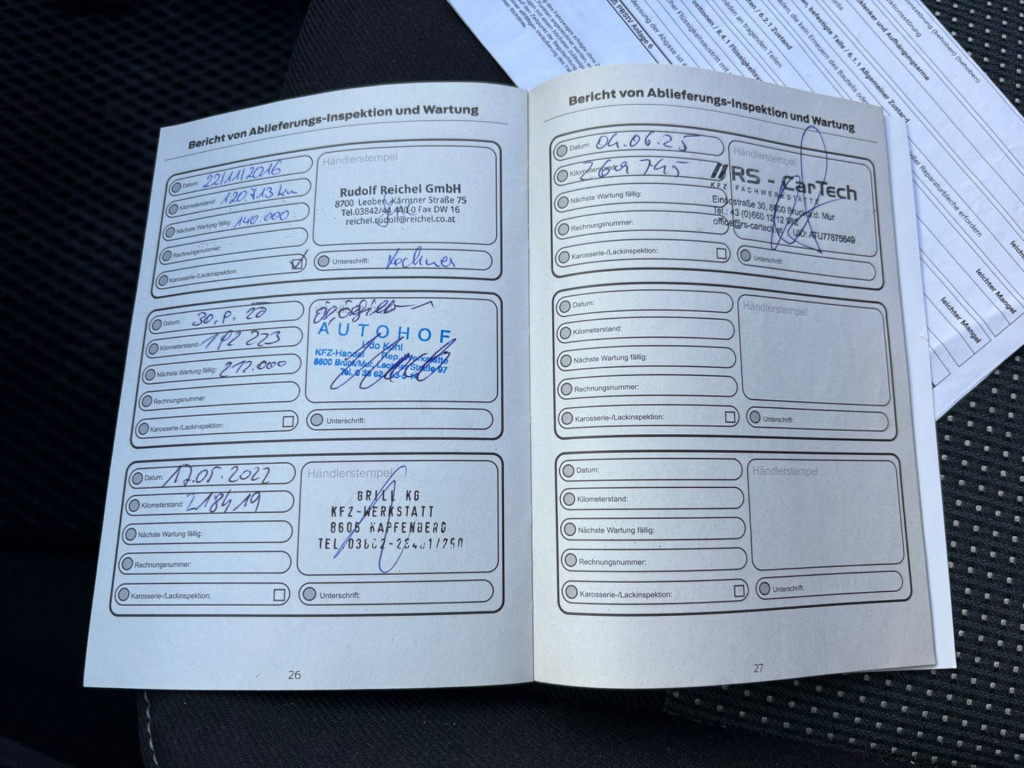 Bericht von Ablieferungs-Inspektion und Wartung
Datum: 22/11/2016
Kilometerstand: 120.713 km
Nächste Wartung fällig: 140.000
Rechnungsnummer:
Karosserie-/Lackinspektion:
Händlerstempel
Rudolf Reichel GmbH
8700 Leoben, Kärntner Straße 75
Tel.03842/ Fax DW 16
reichel.rudolf@reichel.co.at
Unterschrift:
Datum: 30. 20
Kilometerstand: 192 223
Nächste Wartung fällig: 212.000
Rechnungsnummer:
Karosserie-/Lackinspektion:
AUTOHOF
Udo Kohl
KFZ-Handel Rep.-Werkstätte
8600 Bruck/Mur, Leobner Straße 97
Unterschrift:
Datum: 17.05.2022
Kilometerstand: 218419
Nächste Wartung fällig:
Rechnungsnummer:
Karosserie-/Lackinspektion:
Händlerstempel
GRILL KG
KFZ-WERKSTATT
8605 KAPFENBERG
Unterschrift:
26
Bericht von Ablieferungs-Inspektion und Wartung
Datum: 04.06.25
Kilometerstand: 269 745
Nächste Wartung fällig:
Rechnungsnummer:
Karosserie-/Lackinspektion:
Händlerstempel
RS - CarTech
KFZ FACHWERKSTÄTTE
Einödstraße 30, 8600 Bruck a.d. Mur
Tel.: +3 (0)660 12 12
office@rs-cartech.at UID: ATU77875649
Unterschrift:
Datum:
Kilometerstand:
Nächste Wartung fällig:
Rechnungsnummer:
Karosserie-/Lackinspektion:
Händlerstempel
Unterschrift:
Datum:
Kilometerstand:
Nächste Wartung fällig:
Rechnungsnummer:
Karosserie-/Lackinspektion:
Händlerstempel
Unterschrift:
27
6.1.1 Allgemeiner Zustand
6.2.1 Zustand
leichter Mangel
leichter Mangel